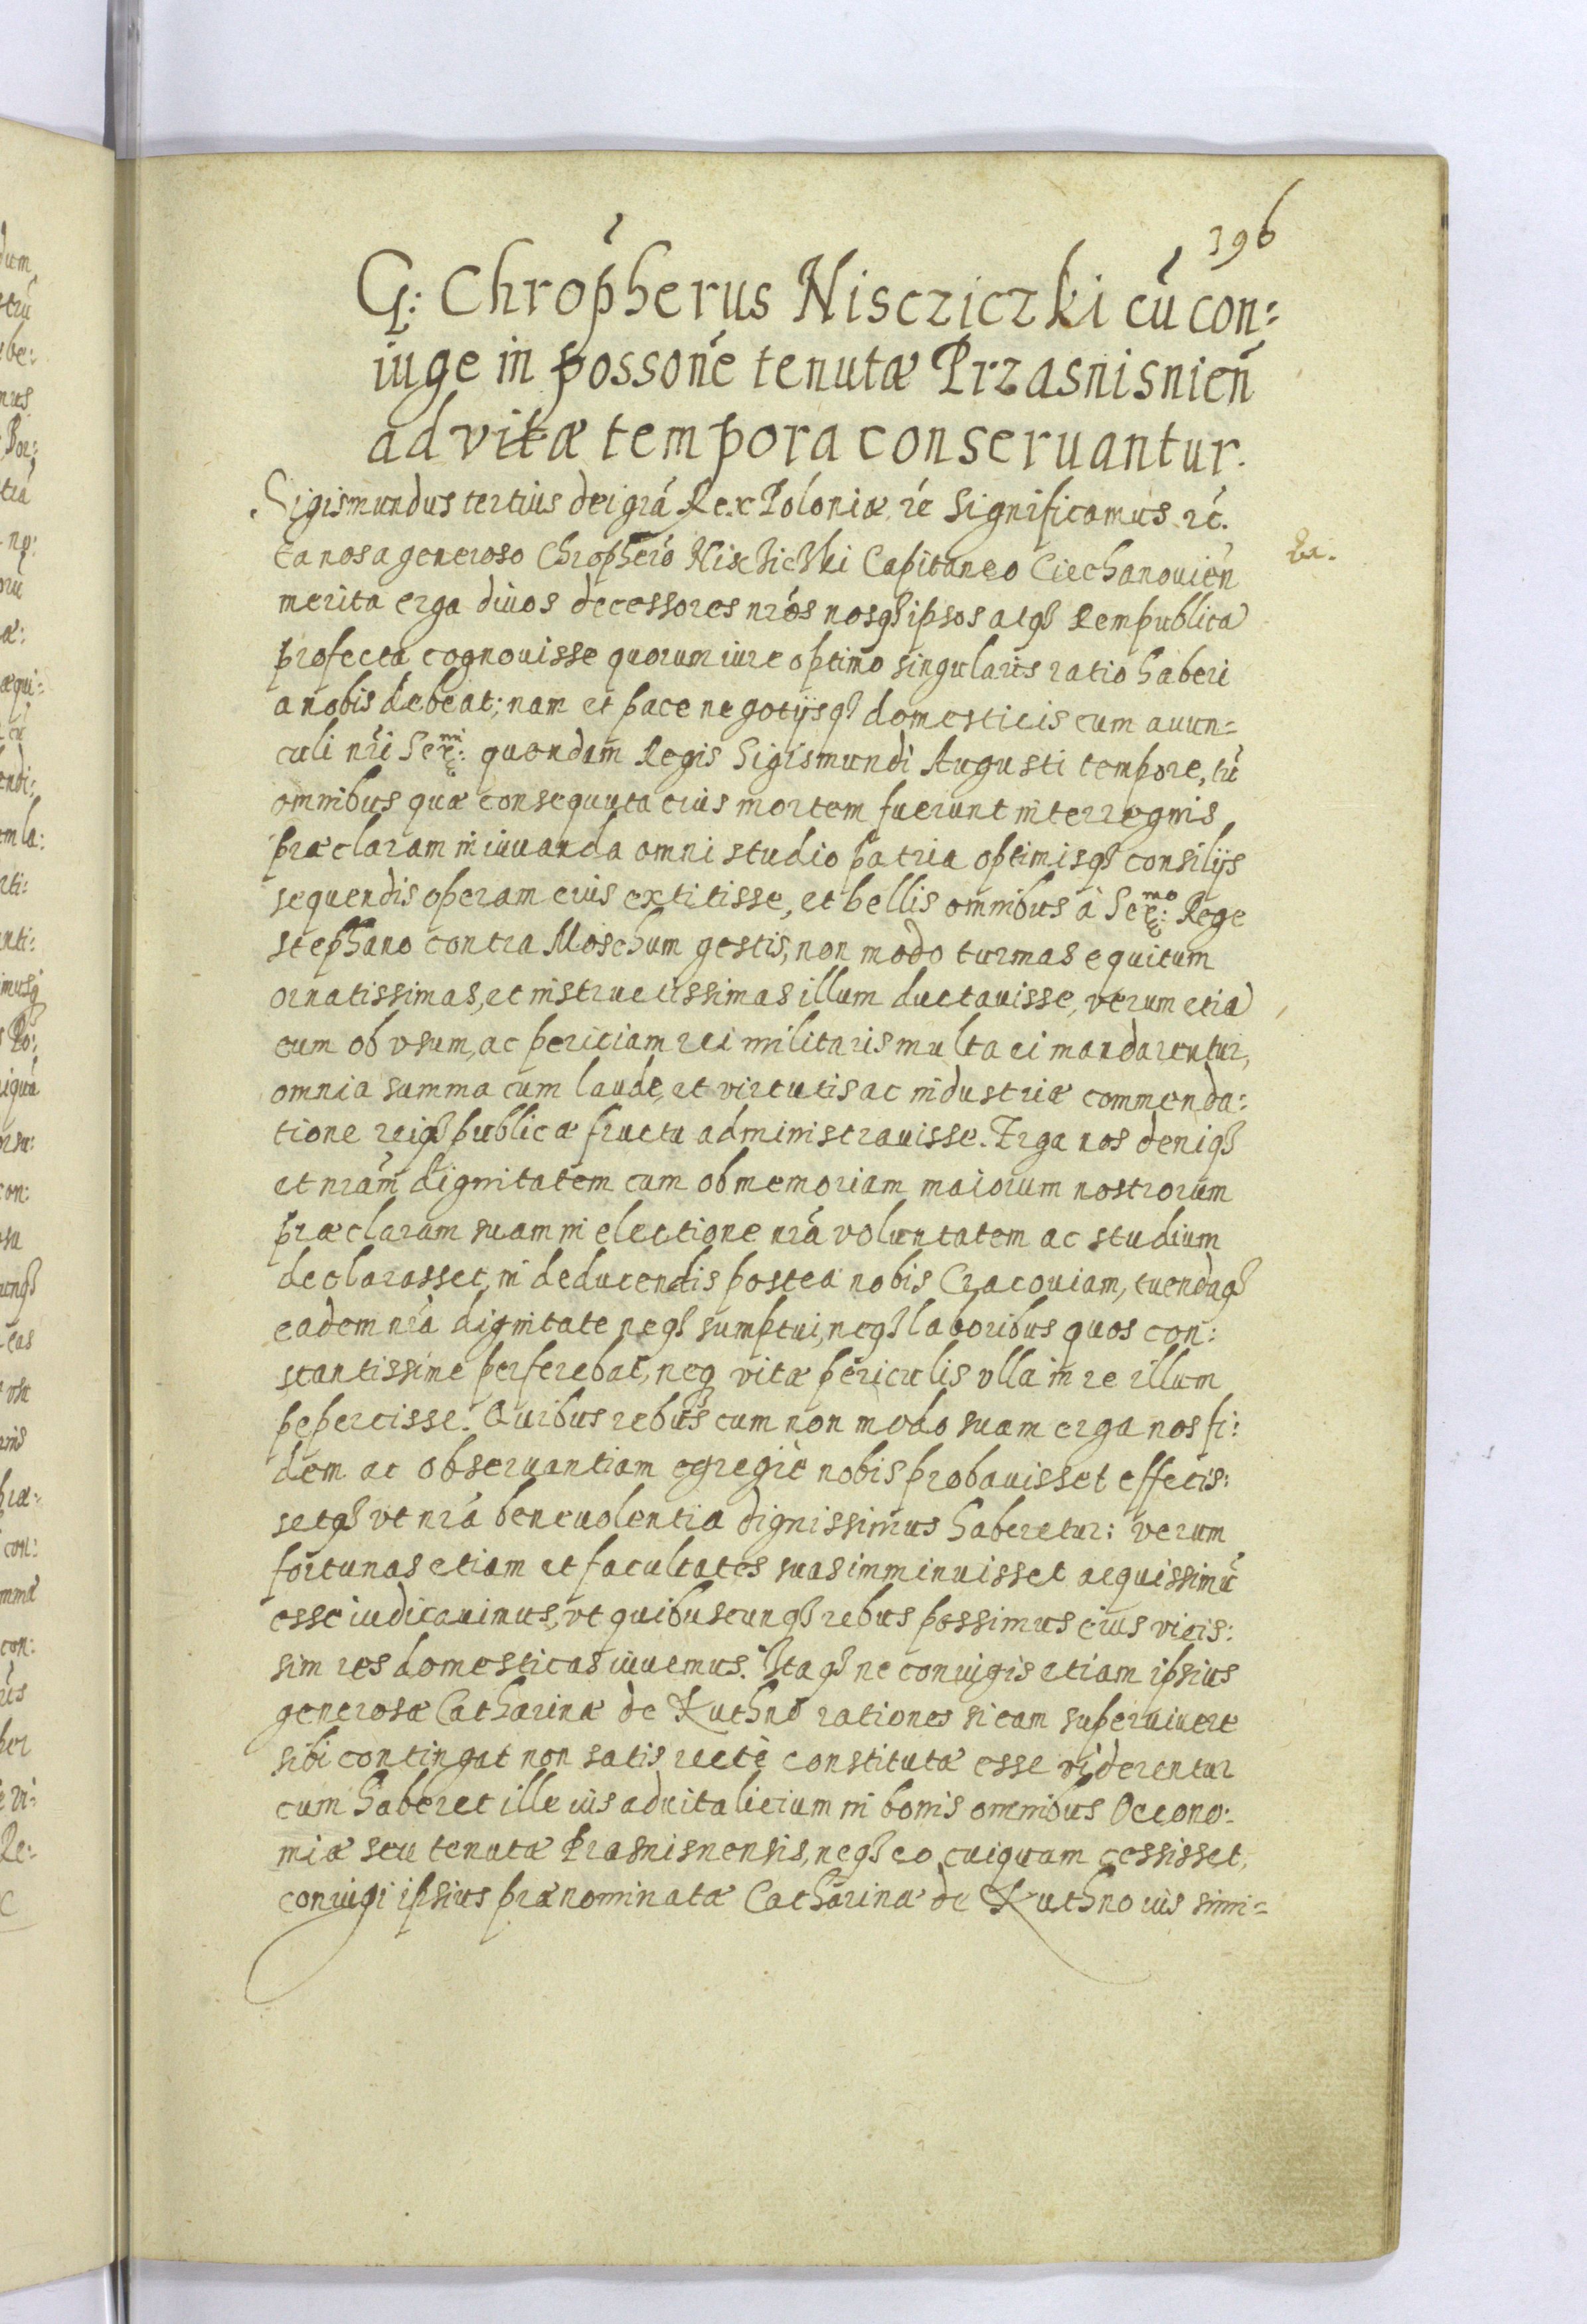 396
G: Chropherus Niscziczki cū con:
iuge in possone tenutæ Przasnisnien
ad vitæ tempora conseruantur.
Sigismundus tertius dei gra Rex Poloniæ rc significamus rc.
Ea nos a generoso Chrophero Nischichki Capitaneo Ciechanouien
merita erga diuos decessores nros nosq ipsos atq Rempublica
profecta cognouisse quorum iure optimo singularis ratio haberi
a nobis debeat; nam et pace negotijsq domesticis cum auun=
culi nri Ser:mi quondam Regis Sigismundi Augusti tempore, tū
omnibus quæ consequuta eius mortem fuerunt interregnis
præclaram in iuuanda omni studio patria optimisq consilijs
sequendis operam eius extitisse, et bellis omnibus à Ser:mo Rege
stephano contra Moschum gestis, non modo turmas equitum
ornatissimas, et instructissimas illum ductauisse, verum etia
cum ob vsum, ac peritiam rei militaris multa ei mandarentur,
omnia summa cum laude, et virtutis ac industriæ commenda:
tione reiq publicæ fructu administrauisse. Erga nos deniq
et nram dignitatem cum ob memoriam maiorum nostrorum
præclaram suam in electione nra voluntatem ac studium
declarasset, in deducendis postea nobis Cracouiam, tuendaq
eadem nra dignitate neq sumptui, neq laboribus quos con:
stantissime perferebat, neq vitæ periculis vlla in re illum
pepercisse. Quibus rebus cum non modo suam erga nos fi:
dem ac obseruantiam egregiè nobis probauisset effecis:
setq vt nra beneuolentia dignissimus haberetur: verum
fortunas etiam et facultates suas imminuisset aequissimū
esse iudicauimus, vt quibuscunq rebus possimus eius vicis:
sim res domesticas iuuemus. Itaq ne coniugis etiam ipsius
generosæ Catharinæ de Kuthno rationes si eam superuiuere
sibi contingat non satis rectè constitutæ esse viderentur
cum haberet ille ius aduitalicium in bonis omnibus Oecono:
miæ seu tenutæ Prasnisnensis, neq eo cuiquam cessisset,
coniugi ipsius prænominatæ Catharinæ de Kuthno ius simi=